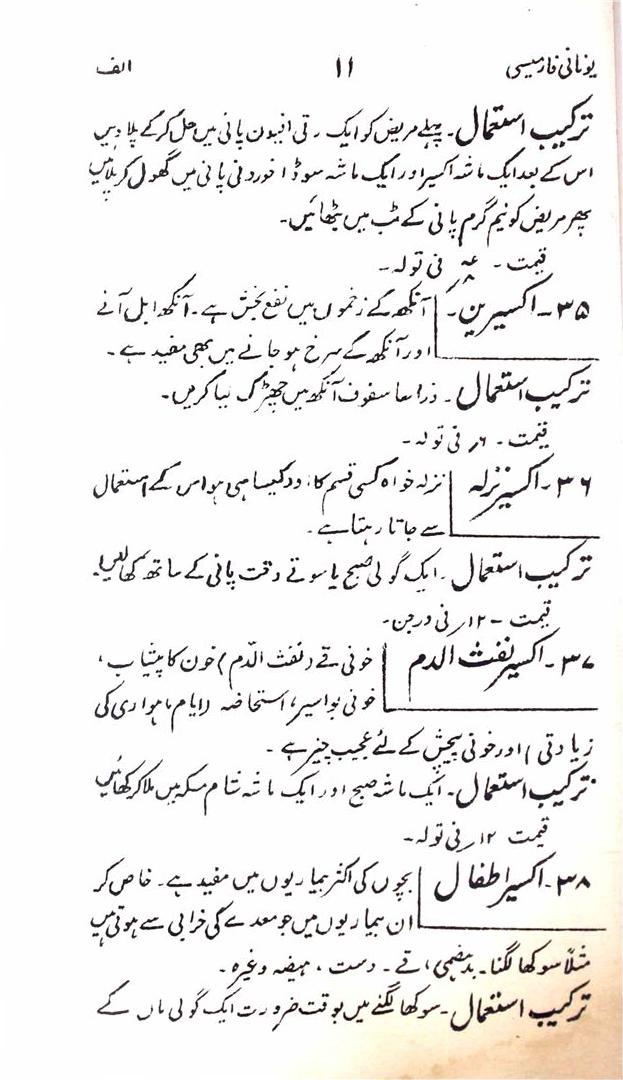 یونانی فارمیسی ۱۱ الف
ترکیب استعمال۔ پہلے مریض کو ایک رتی افیون پانی میں حل کرکے پلا دیں
اس کے بعد ایک ماشہ اکسیر اور ایک ماشہ سوڈا خوردنی پانی میں گھول کر پلائیں
پھر مریض کو نیم گرم پانی کے ٹب میں بٹھائیں۔
قیمت۔ فی تولہ۔
۳۵۔ اکسیرین۔ آنکھ کے زخموں میں نفع بخش ہے۔ آنکھ ابل آنے
اور آنکھ کے سرخ ہو جانے میں بھی مفید ہے۔
ترکیب استعمال۔ ذرا سا سفوف آنکھ میں چھڑک لیا کریں۔
قیمت۔ ۶ر فی تولہ۔
۳۶۔ اکسیر نزلہ نزلہ خواہ کسی قسم کا اور کیسا ہی ہو اس کے استعمال
سے جاتا رہتا ہے۔
ترکیب استعمال۔ ایک گولی صبح یا سوتے وقت پانی کے ساتھ کھالیں۔
قیمت۔ ۱۲ر فی درجن۔
۳۷۔ اکسیر نفث الدم خونی قے (نفث الدّم) خون کا پیشاب،
خونی بواسیر، استحاضہ (ایام ماہواری کی
زیادتی) اور خونی پیچش کے لئے عجیب چیز ہے۔
ترکیب استعمال۔ ایک ماشہ صبح اور ایک ماشہ شام مسکہ میں ملا کر کھائیں
قیمت ۱۲ر فی تولہ۔
۳۸۔ اکسیر اطفال بچوں کی اکثر بیماریوں میں مفید ہے۔ خاص کر
ان بیماریوں میں جو معدے کی خرابی سے ہوتی ہیں
مثلاً سوکھا لگنا۔ بدہضمی، قے۔ دست، ہیضہ وغیرہ۔
ترکیب استعمال۔ سوکھا لگنے میں بوقت ضرورت ایک گولی ماں کے